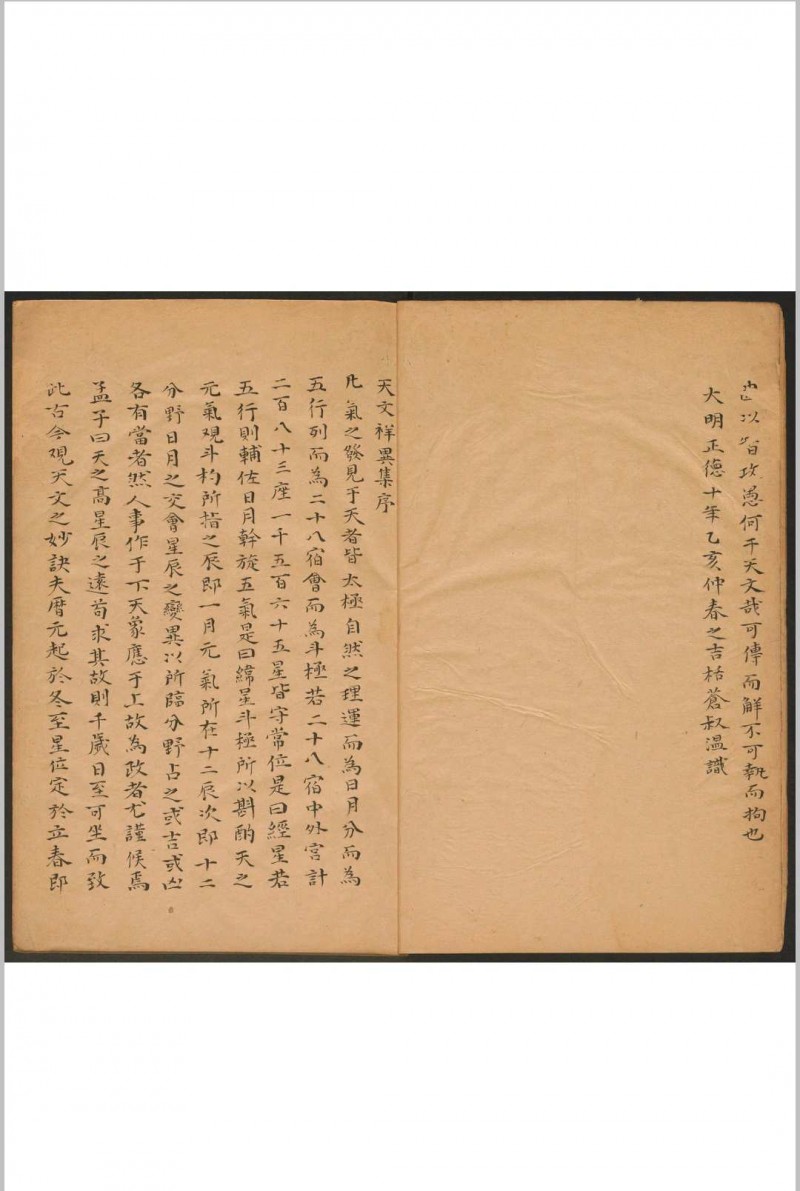 以皆攻愚何干天文哉可傳而解不可執而拘也
大明正德十年乙亥仲春之吉栝蒼叔温識
天文祥異集序
凡氣之發見于天者皆太極自然之理運而為日月分而為
五行列而為二十八宿會而為斗極若二十八宿中外宮計
二百八十三座一千五百六十五星皆守常位是曰經星若
五行則輔佐日月幹旋五氣是曰緯星斗極所以斟酌天之
元氣观斗杓所指之辰即一月元氣所在十二辰次即十二
分野日月之交會星辰之變異以所臨分野占之或吉或凶
各有當者然人事作于下天象應于上故為政者尤謹候焉
孟子曰天之髙星辰之遠苟求其故則千歲日至可坐而致
此古今观天文之妙訣夫厝元起於冬至星位定於立春即